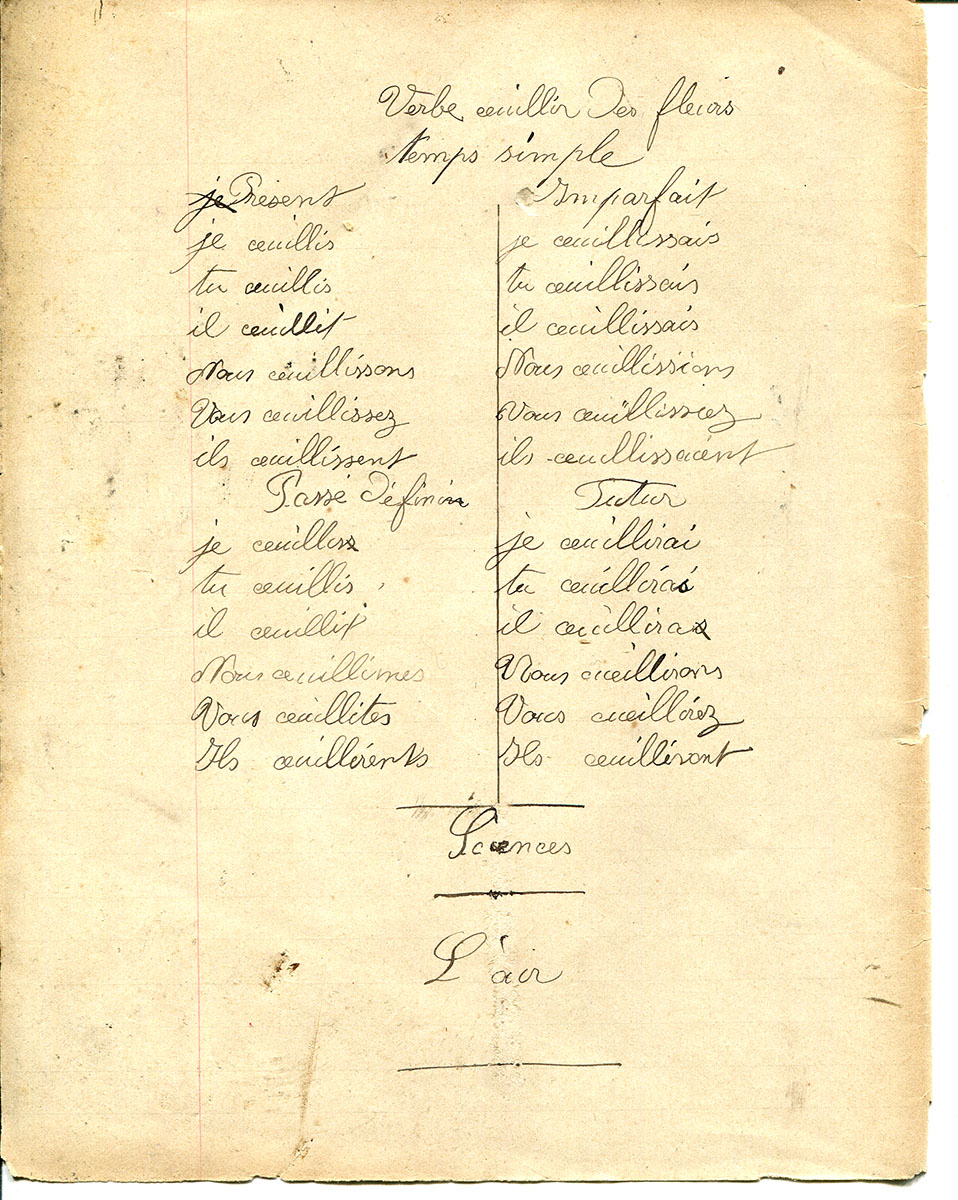 Verbe œuillir des fleurs
temps simple
je Présent
je œuillis
tu œuillis
il œuillit
Nous œuillissons
Vous œuillissez
ils œuillissent
Passé défini
je œuillis
tu œuillis
il œuillit
Nous œuillimes
Vous œuillites
Ils œuillirents
Imparfait
je œuillissais
tu œuillissais
il œuillissais
Nous œuillissions
Vous œuillissiez
ils œuillissaient
Futur
je œuillirai
tu œuilliras
il œuillira
Nous œuillirons
Vous œuillirez
Ils œuilliront
Sciences
L'air